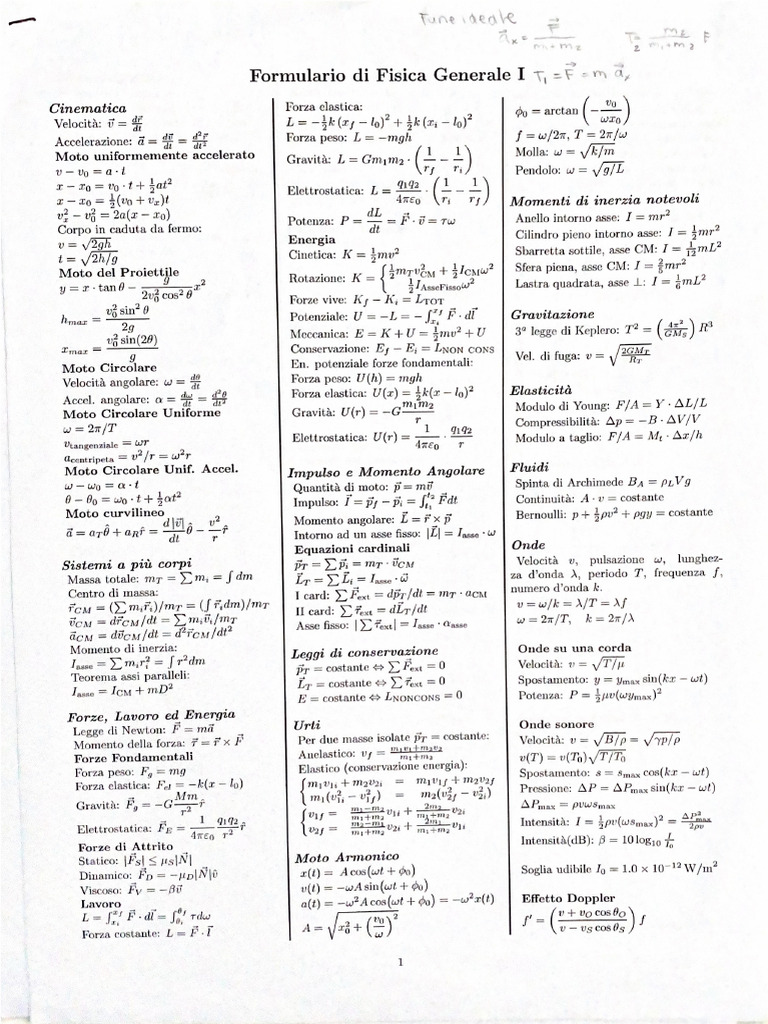 Fune ideale
a⃗ₓ = F⃗ / (m₁+m₂)   T₂ = m₂ / (m₁+m₂) F
Formulario di Fisica Generale I   T₁ = F⃗ = m a⃗ₓ
Cinematica
Velocità: v⃗ = dr⃗/dt
Accelerazione: a⃗ = dv⃗/dt = d²r⃗/dt²
Moto uniformemente accelerato
v − v₀ = a · t
x − x₀ = v₀ · t + ½at²
x − x₀ = ½(v₀ + vₓ)t
vₓ² − v₀² = 2a(x − x₀)
Corpo in caduta da fermo:
v = √(2gh)
t = √(2h/g)
Moto del Proiettile
y = x · tan θ − g/(2v₀² cos² θ) x²
h_max = v₀² sin² θ / 2g
x_max = v₀² sin(2θ) / g
Moto Circolare
Velocità angolare: ω = dθ/dt
Accel. angolare: α = dω/dt = d²θ/dt²
Moto Circolare Uniforme
ω = 2π/T
v_tangenziale = ωr
a_centripeta = v²/r = ω²r
Moto Circolare Unif. Accel.
ω − ω₀ = α · t
θ − θ₀ = ω₀ · t + ½αt²
Moto curvilineo
a⃗ = a_T θ̂ + a_R r̂ = d|v⃗|/dt θ̂ − v²/r r̂
Sistemi a più corpi
Massa totale: m_T = ∑ m_i = ∫ dm
Centro di massa:
r⃗_CM = (∑ m_i r⃗_i)/m_T = (∫ r⃗_i dm)/m_T
v⃗_CM = dr⃗_CM/dt = ∑ m_i v⃗_i/m_T
a⃗_CM = dv⃗_CM/dt = d²r⃗_CM/dt²
Momento di inerzia:
I_asse = ∑ m_i r_i² = ∫ r² dm
Teorema assi paralleli:
I_asse = I_CM + mD²
Forze, Lavoro ed Energia
Legge di Newton: F⃗ = ma⃗
Momento della forza: τ⃗ = r⃗ × F⃗
Forze Fondamentali
Forza peso: F_g = mg
Forza elastica: F_el = −k(x − l₀)
Gravità: F⃗_g = −G Mm/r² r̂
Elettrostatica: F⃗_E = 1/(4πε₀) q₁q₂/r² r̂
Forze di Attrito
Statico: |F⃗_S| ≤ μ_S|N⃗|
Dinamico: F⃗_D = −μ_D|N⃗|v̂
Viscoso: F⃗_V = −βv⃗
Lavoro
L = ∫_{x_i}^{x_f} F⃗ · dl⃗ = ∫_{θ_i}^{θ_f} τdω
Forza costante: L = F⃗ · l⃗
Forza elastica:
L = −½k (x_f − l₀)² + ½k (x_i − l₀)²
Forza peso: L = −mgh
Gravità: L = Gm₁m₂ · (1/r_f − 1/r_i)
Elettrostatica: L = q₁q₂/(4πε₀) · (1/r_i − 1/r_f)
Potenza: P = dL/dt = F⃗ · v⃗ = τω
Energia
Cinetica: K = ½mv²
Rotazione: K = { ½m_T v²_CM + ½I_CM ω²
½I_AsseFisso ω²
Forze vive: K_f − K_i = L_TOT
Potenziale: U = −L = −∫_{x_i}^{x_f} F⃗ · dl⃗
Meccanica: E = K + U = ½mv² + U
Conservazione: E_f − E_i = L_NON CONS
En. potenziale forze fondamentali:
Forza peso: U(h) = mgh
Forza elastica: U(x) = ½k(x − l₀)²
Gravità: U(r) = −G m₁m₂/r
Elettrostatica: U(r) = 1/(4πε₀) · q₁q₂/r
Impulso e Momento Angolare
Quantità di moto: p⃗ = mv⃗
Impulso: I⃗ = p⃗_f − p⃗_i = ∫_{t₁}^{t₂} F⃗dt
Momento angolare: L⃗ = r⃗ × p⃗
Intorno ad un asse fisso: |L⃗| = I_asse · ω
Equazioni cardinali
p⃗_T = ∑ p⃗_i = m_T · v⃗_CM
L⃗_T = ∑ L⃗_i = I_asse · ω⃗
I card: ∑ F⃗_ext = dp⃗_T/dt = m_T · a_CM
II card: ∑ τ⃗_ext = dL⃗_T/dt
Asse fisso: |∑ τ⃗_ext| = I_asse · α_asse
Leggi di conservazione
p⃗_T = costante ⇔ ∑ F⃗_ext = 0
L⃗_T = costante ⇔ ∑ τ⃗_ext = 0
E = costante ⇔ L_NONCONS = 0
Urti
Per due masse isolate p⃗_T = costante:
Anelastico: v_f = (m₁v₁+m₂v₂)/(m₁+m₂)
Elastico (conservazione energia):
{ m₁v₁ᵢ + m₂v₂ᵢ = m₁v₁f + m₂v₂f
m₁(v²₁ᵢ − v²₁f) = m₂(v²₂f − v²₂ᵢ)
{ v₁f = (m₁−m₂)/(m₁+m₂) v₁ᵢ + 2m₂/(m₁+m₂) v₂ᵢ
v₂f = (m₂−m₁)/(m₁+m₂) v₂ᵢ + 2m₁/(m₁+m₂) v₁ᵢ
Moto Armonico
x(t) = A cos(ωt + ϕ₀)
v(t) = −ωA sin(ωt + ϕ₀)
a(t) = −ω²A cos(ωt + ϕ₀) = −ω²x(t)
A = √(x₀² + (v₀/ω)²)
ϕ₀ = arctan (−v₀/(ωx₀))
f = ω/2π, T = 2π/ω
Molla: ω = √(k/m)
Pendolo: ω = √(g/L)
Momenti di inerzia notevoli
Anello intorno asse: I = mr²
Cilindro pieno intorno asse: I = ½mr²
Sbarretta sottile, asse CM: I = 1/12 mL²
Sfera piena, asse CM: I = 2/5 mr²
Lastra quadrata, asse ⊥: I = 1/6 mL²
Gravitazione
3ᵃ legge di Keplero: T² = (4π²/GM_S) R³
Vel. di fuga: v = √(2GM_T/R_T)
Elasticità
Modulo di Young: F/A = Y · ΔL/L
Compressibilità: Δp = −B · ΔV/V
Modulo a taglio: F/A = M_t · Δx/h
Fluidi
Spinta di Archimede B_A = ρ_L V g
Continuità: A · v = costante
Bernoulli: p + ½ρv² + ρgy = costante
Onde
Velocità v, pulsazione ω, lunghez-
za d'onda λ, periodo T, frequenza f,
numero d'onda k.
v = ω/k = λ/T = λf
ω = 2π/T, k = 2π/λ
Onde su una corda
Velocità: v = √(T/μ)
Spostamento: y = y_max sin(kx − ωt)
Potenza: P = ½μv(ωy_max)²
Onde sonore
Velocità: v = √(B/ρ) = √(γp/ρ)
v(T) = v(T₀)√(T/T₀)
Spostamento: s = s_max cos(kx − ωt)
Pressione: ΔP = ΔP_max sin(kx − ωt)
ΔP_max = ρvωs_max
Intensità: I = ½ρv(ωs_max)² = ΔP²_max/2ρv
Intensità(dB): β = 10 log₁₀ I/I₀
Soglia udibile I₀ = 1.0 × 10⁻¹² W/m²
Effetto Doppler
f′ = ((v + v_O cos θ_O)/(v − v_S cos θ_S)) f
1